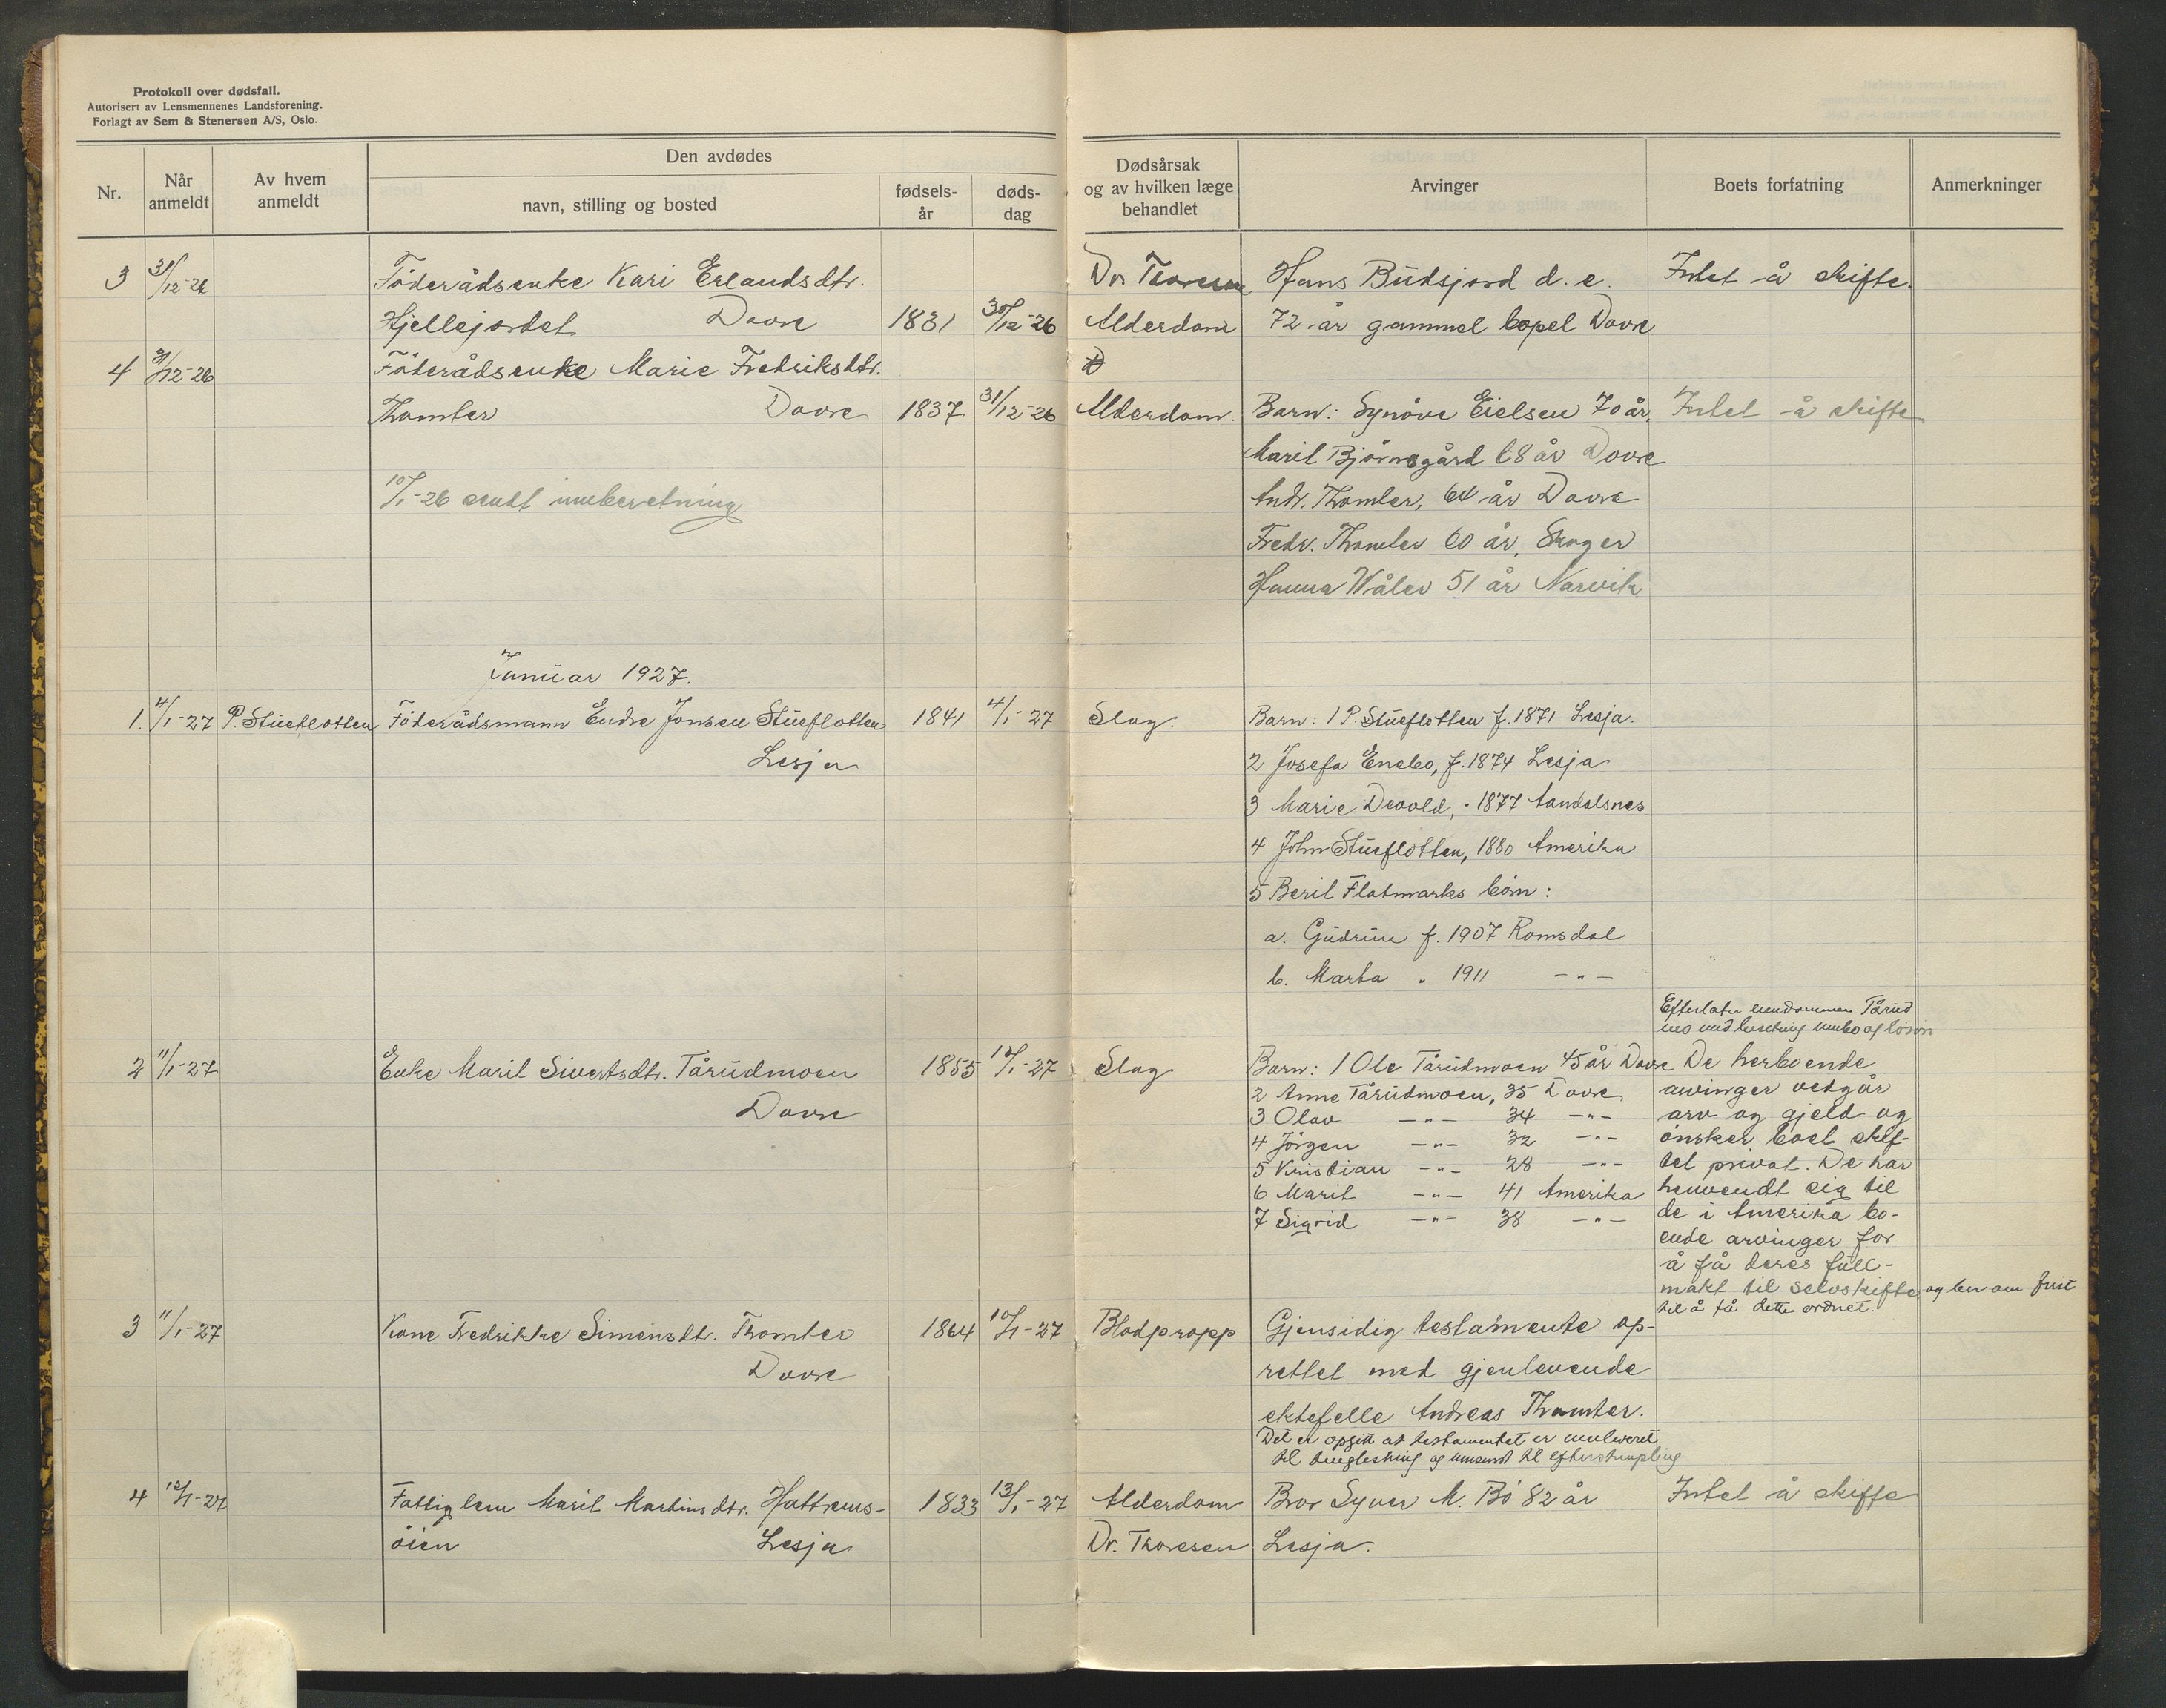 Protokoll over dødsfall.
Autorisert av Lensmennenes Landsforening.
Forlagt av Sem & Stenersen A/S, Oslo.
Nr.
Når anmeldt
Av hvem anmeldt
Den avdødes
navn, stilling og bosted
fødsels-år
døds-dag
Dødsårsak og av hvilken læge behandlet
Arvinger
Boets forfatning
Anmerkninger
3 31/12-26 Föderådsenke Kari Erlandsdtr. Dr. Thoresen Hans Budsjord d. e. Intet å skifte.
Hjellejordet Dovre 1831 30/12-26 Alderdom 72 år gammel bopel Dovre
4 31/12-26 Föderådsenke Marie Fredriksdtr.
Thomter Dovre 1837 31/12-26 Alderdom. Barn: Synöve Eielsen 70 år, Intet å skifte
Marit Björnsgård 68 år Dovre
10/1-26 sendt innberetning Andr. Thomter, 64 år Dovre
Fredr. Thomter 60 år, Skoger
Hanna Wåler 51 år Narvik
Januar 1927.
1. 4/1-27 P. Stueflotten Föderådsmann Endre Jonsen Stueflotten 1841 4/1-27 Slag. Barn: 1 P. Stueflotten f. 1871 Lesja.
Lesja 2 Josefa Enebo, f. 1874 Lesja
3 Marie Devold, " 1877 Aandalsnes
4 John Stueflotten, 1880 Amerika
5 Berit Flatmarks börn:
a. Gudrun f. 1907 Romsdal
b. Marta " 1911 -"-
Efterlater eiendommen Tårud
mo med besetning innbo og lösöre
2 11/1-27 Enke Marit Sivertsdtr. Tårudmoen 1855 10/1-27 Slag Barn: 1 Ole Tårudmoen 45 år Dovre De herboende
Dovre 2 Anne Tårudmoen, 35 Dovre arvinger vedgår
3 Olav -"- 34 -"- arv og gjeld og
4 Jörgen -"- 32 -"- önsker boet skif-
5 Kristian -"- 28 -"- tet privat. De har
6 Marit -"- 41 Amerika henvendt sig til
7 Sigrid -"- 38 -"- de i Amerika bo-
ende arvinger for
å få deres full-
makt til selvskifte og ber om frist
til å få dette ordnet.
3 11/1-27 Kone Fredrikke Simensdtr. Thomter 1864 10/1-27 Blodpropp Gjensidig testamente op-
Dovre rettet med gjenlevende
ektefelle Andreas Thomter.
Det er opgitt at testamentet er innlevert
til tinglesning og innsendt til efterstempling
4 13/1-27 Fattiglem Marit Martinsdtr. Hattrems- 1833 13/1-27 Alderdom Bror Syver M. Bö 82 år Intet å skifte
öien Lesja Dr. Thoresen Lesja.